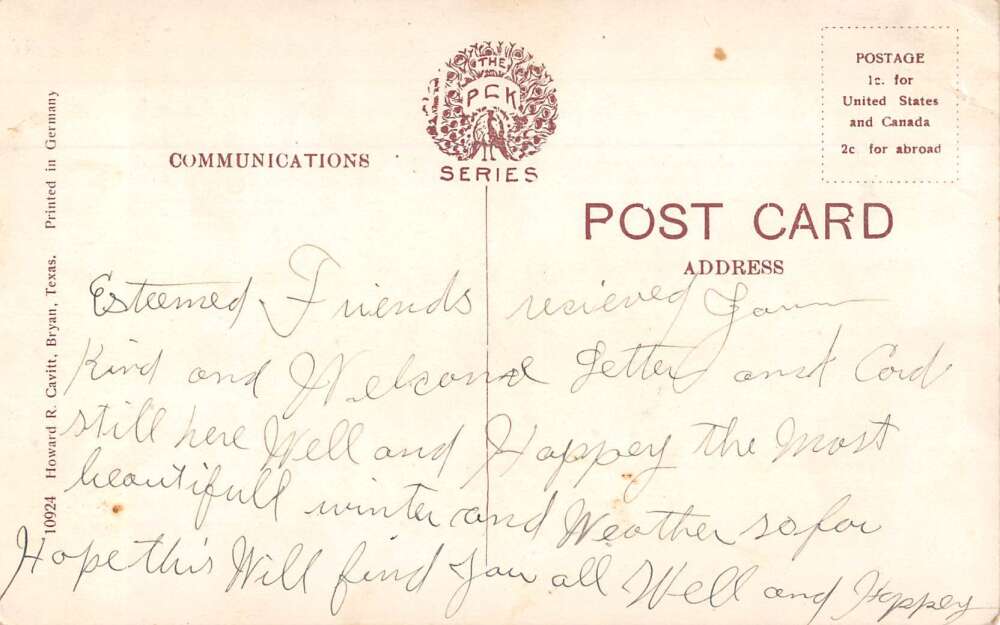 THE
PCK
SERIES
COMMUNICATIONS
POSTAGE
1c. for
United States
and Canada
2c for abroad
POST CARD
ADDRESS
10924 Howard R. Cavitt, Bryan, Texas. Printed in Germany
Esteemed Friends recieved Your
Kind and Welcome Letter and Card
still here Well and Happey the Most
beautifull winter and Weather so far
Hope this Will find You all Well and Happey